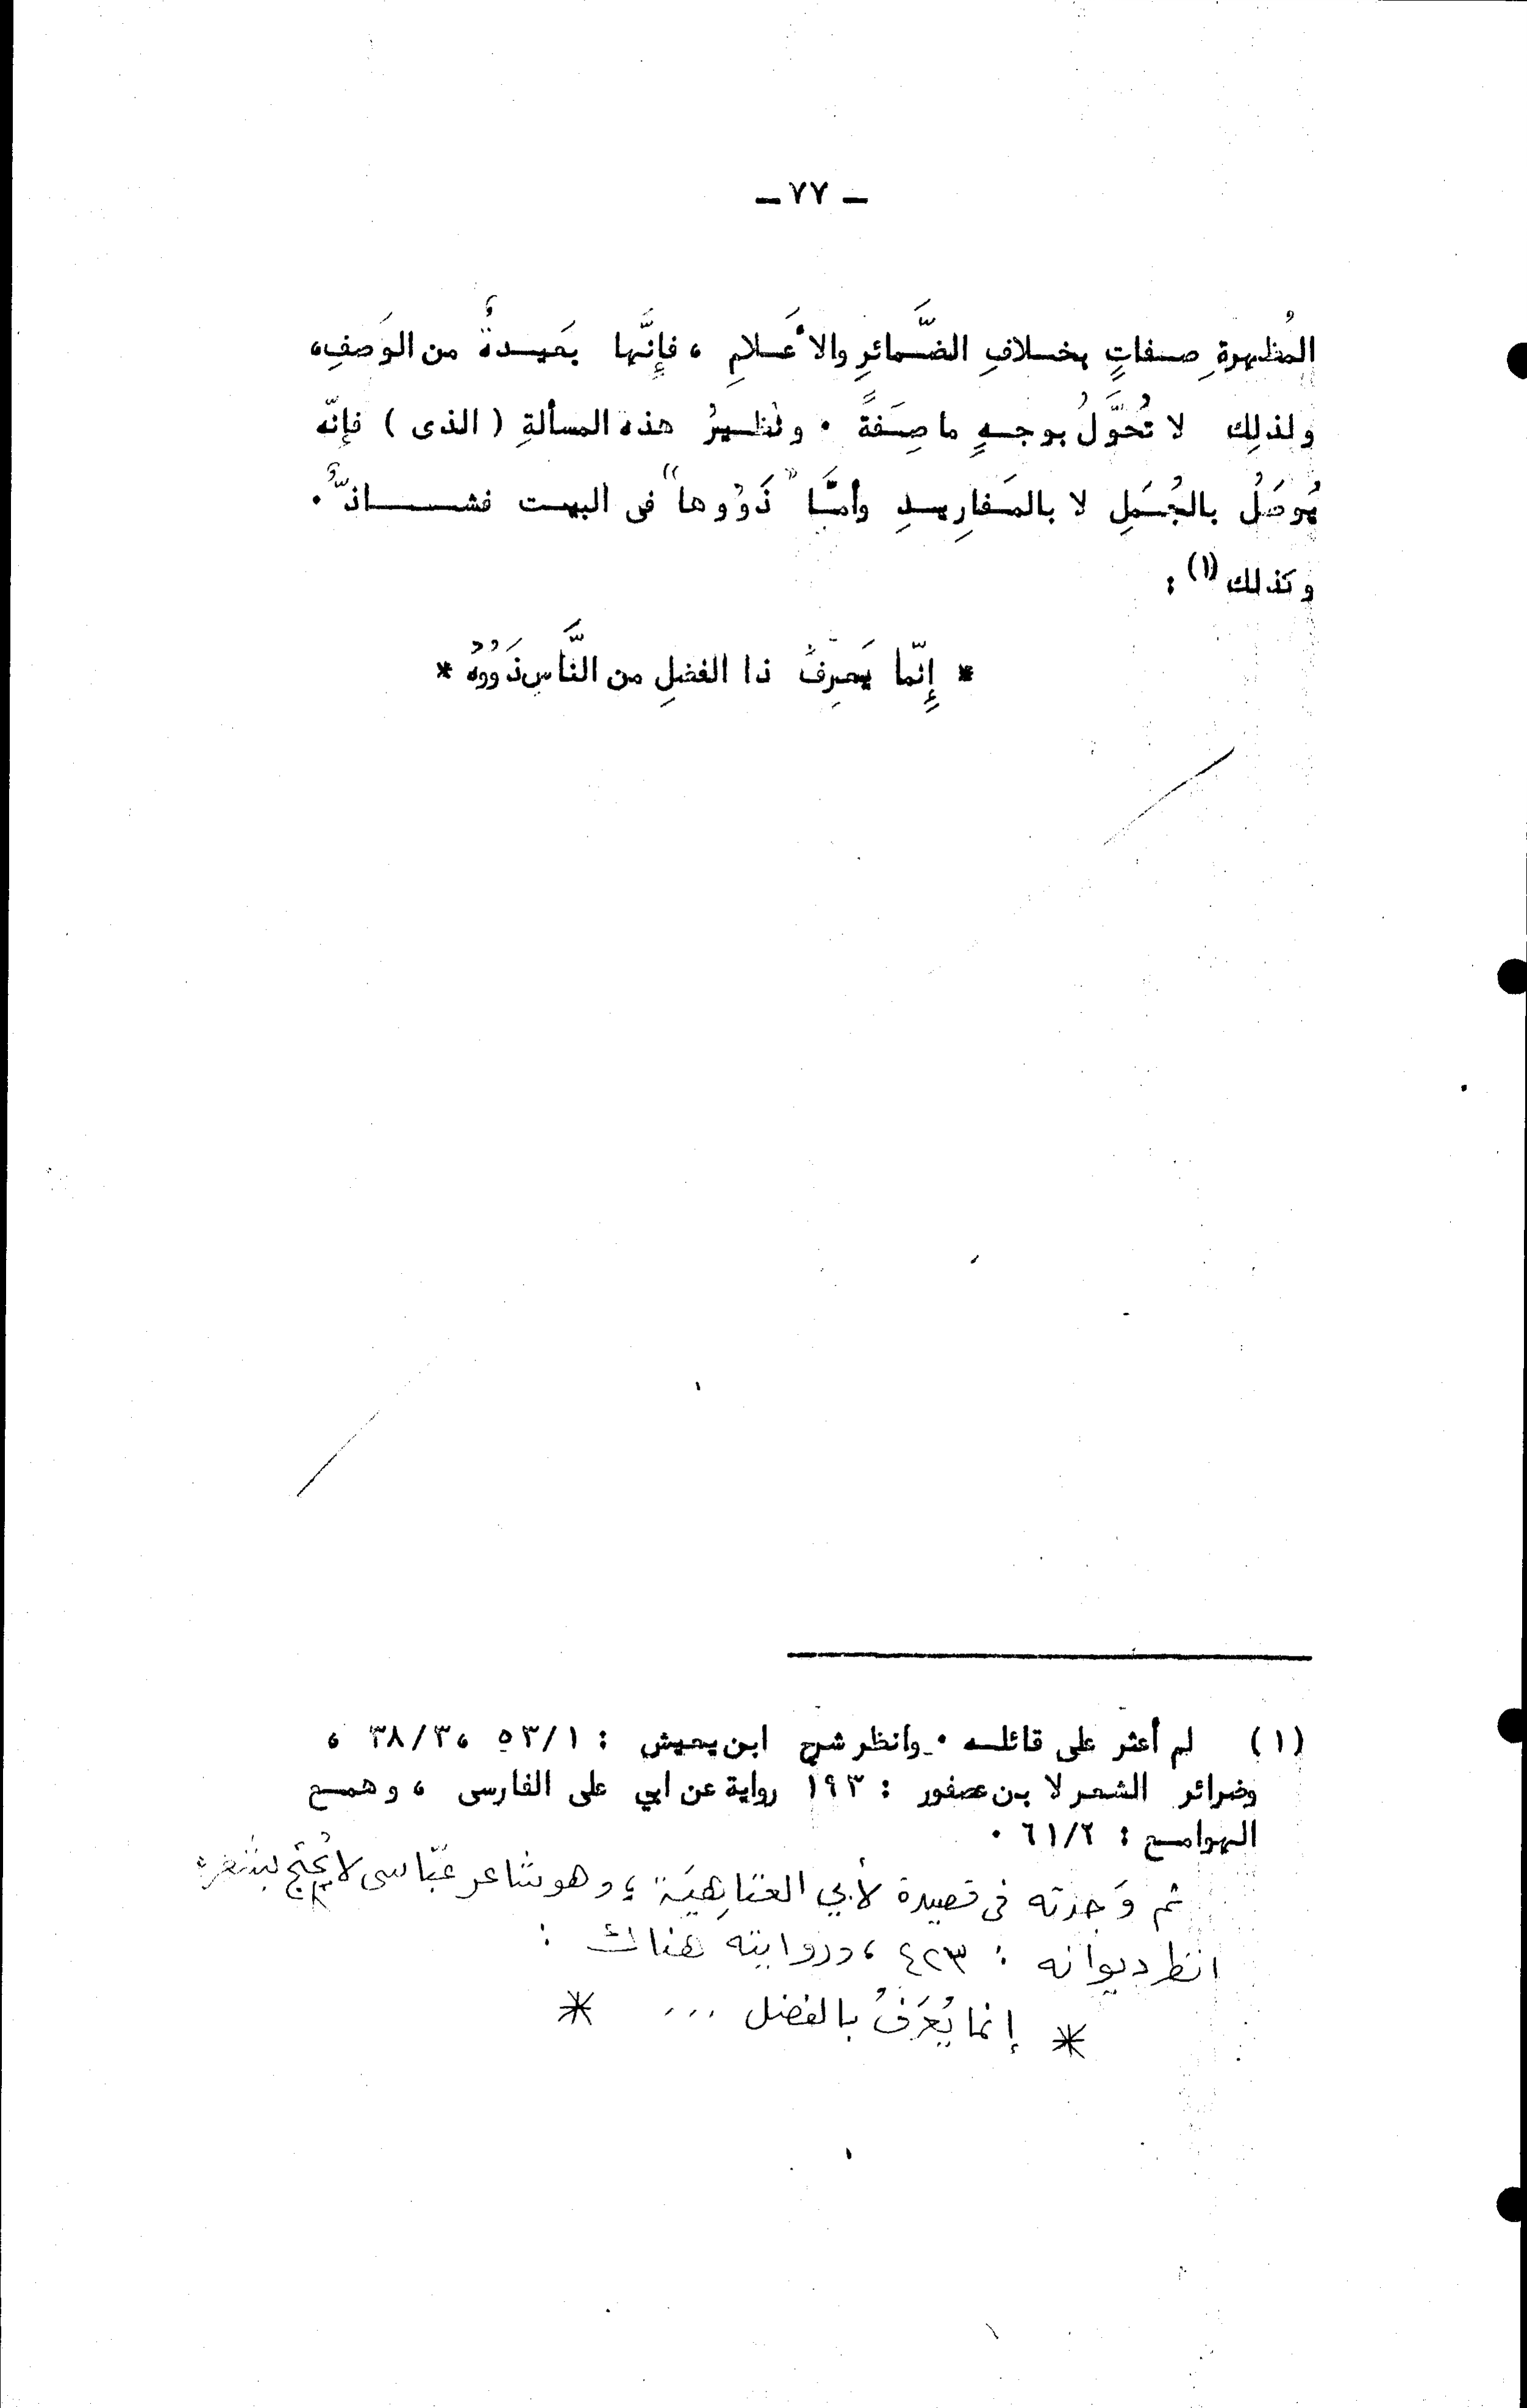 — ٧٧ —
المُظهرةِ صفاتٍ بخلافِ الضَّمائرِ والأَعلامِ ، فإِنَّها بَعيدةٌ من الوَصفِ،
ولذلِك لا تُحَوَّلُ بوجهٍ ما صِفَةً . ونَظيرُ هذه المسألةِ ( الذى ) فإنّه
يُوصَلُ بالجُمَلِ لا بالمَفارِيدِ وأمَّا "ذَوُوها" فى البيت فشاذٌّ .
وكذلك (١) :
* إِنّما يَعرِفُ ذا الفضلِ من النَّاسِ ذَوُوهُ *
(١) لم أعثر على قائله . وانظر شرح ابن يعيش : ٥٣/١ ، ٣٨/٣ ،
وضرائر الشعر لابن عصفور : ١٩٣ رواية عن ابي على الفارسى ، وهمع
الهوامع : ٦١/٢ .
ثم وَجدته فى قصيدة لأبي العتاهِيَة ؛ وهو شاعر عبّاسى لا يُحتج بشعره
انظر ديوانه : ٤٢٣ ، وروايته هناك :
* إنما يُعرَفُ بالفضل ... *